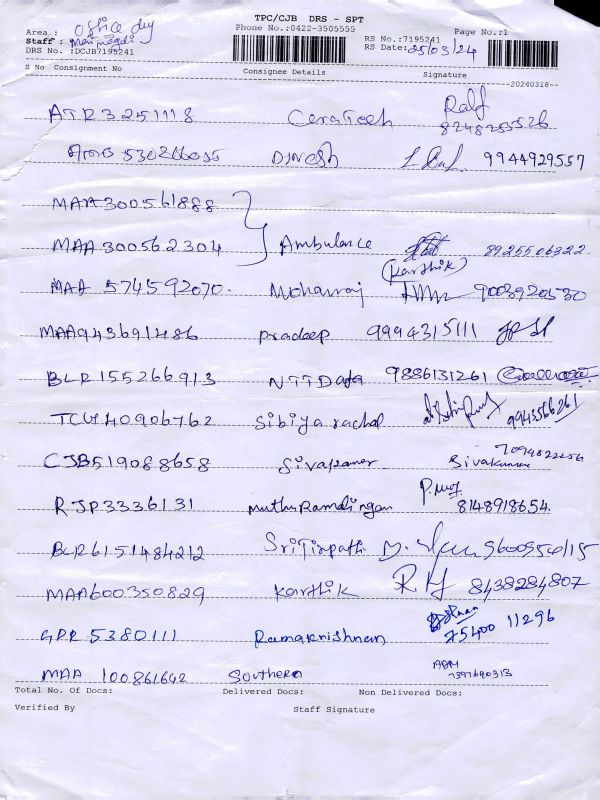 TPC/CJB DRS - SPT
Phone No.:0422-3505555
Page No.:1
Area : office dly
Staff :
DRS No. :DCJB7195241
RS No.:7195241
RS Date: 25/03/24
S No Consignment No Consignee Details Signature
20240318
ATR 3251118 Ceratech Ralf
8248255526
530266035 Dinesh 9944929557
MAA 300561888
MAA 300562304 Ambulance 8925506322
(Karthik)
MAA 574592070 Mohanraj 9003920530
MAA943691486 Pradeep 9994315111
BLR155266913 NTT Data 9886131261
TCU140906762 Sibiya rachel 9943566261
CJB519088658 Sivakumar Sivakumar 7094822256
RJP3336131 Muthuramalingan 8148918654
BLR6151484212 Sritirpathi 9600956115
MAA600350829 Karthik 8438284807
5380111 Ramakrishnan 75400 11296
MAA 100861642 Southern 7397690313
Total No. Of Docs: Delivered Docs: Non Delivered Docs:
Verified By Staff Signature